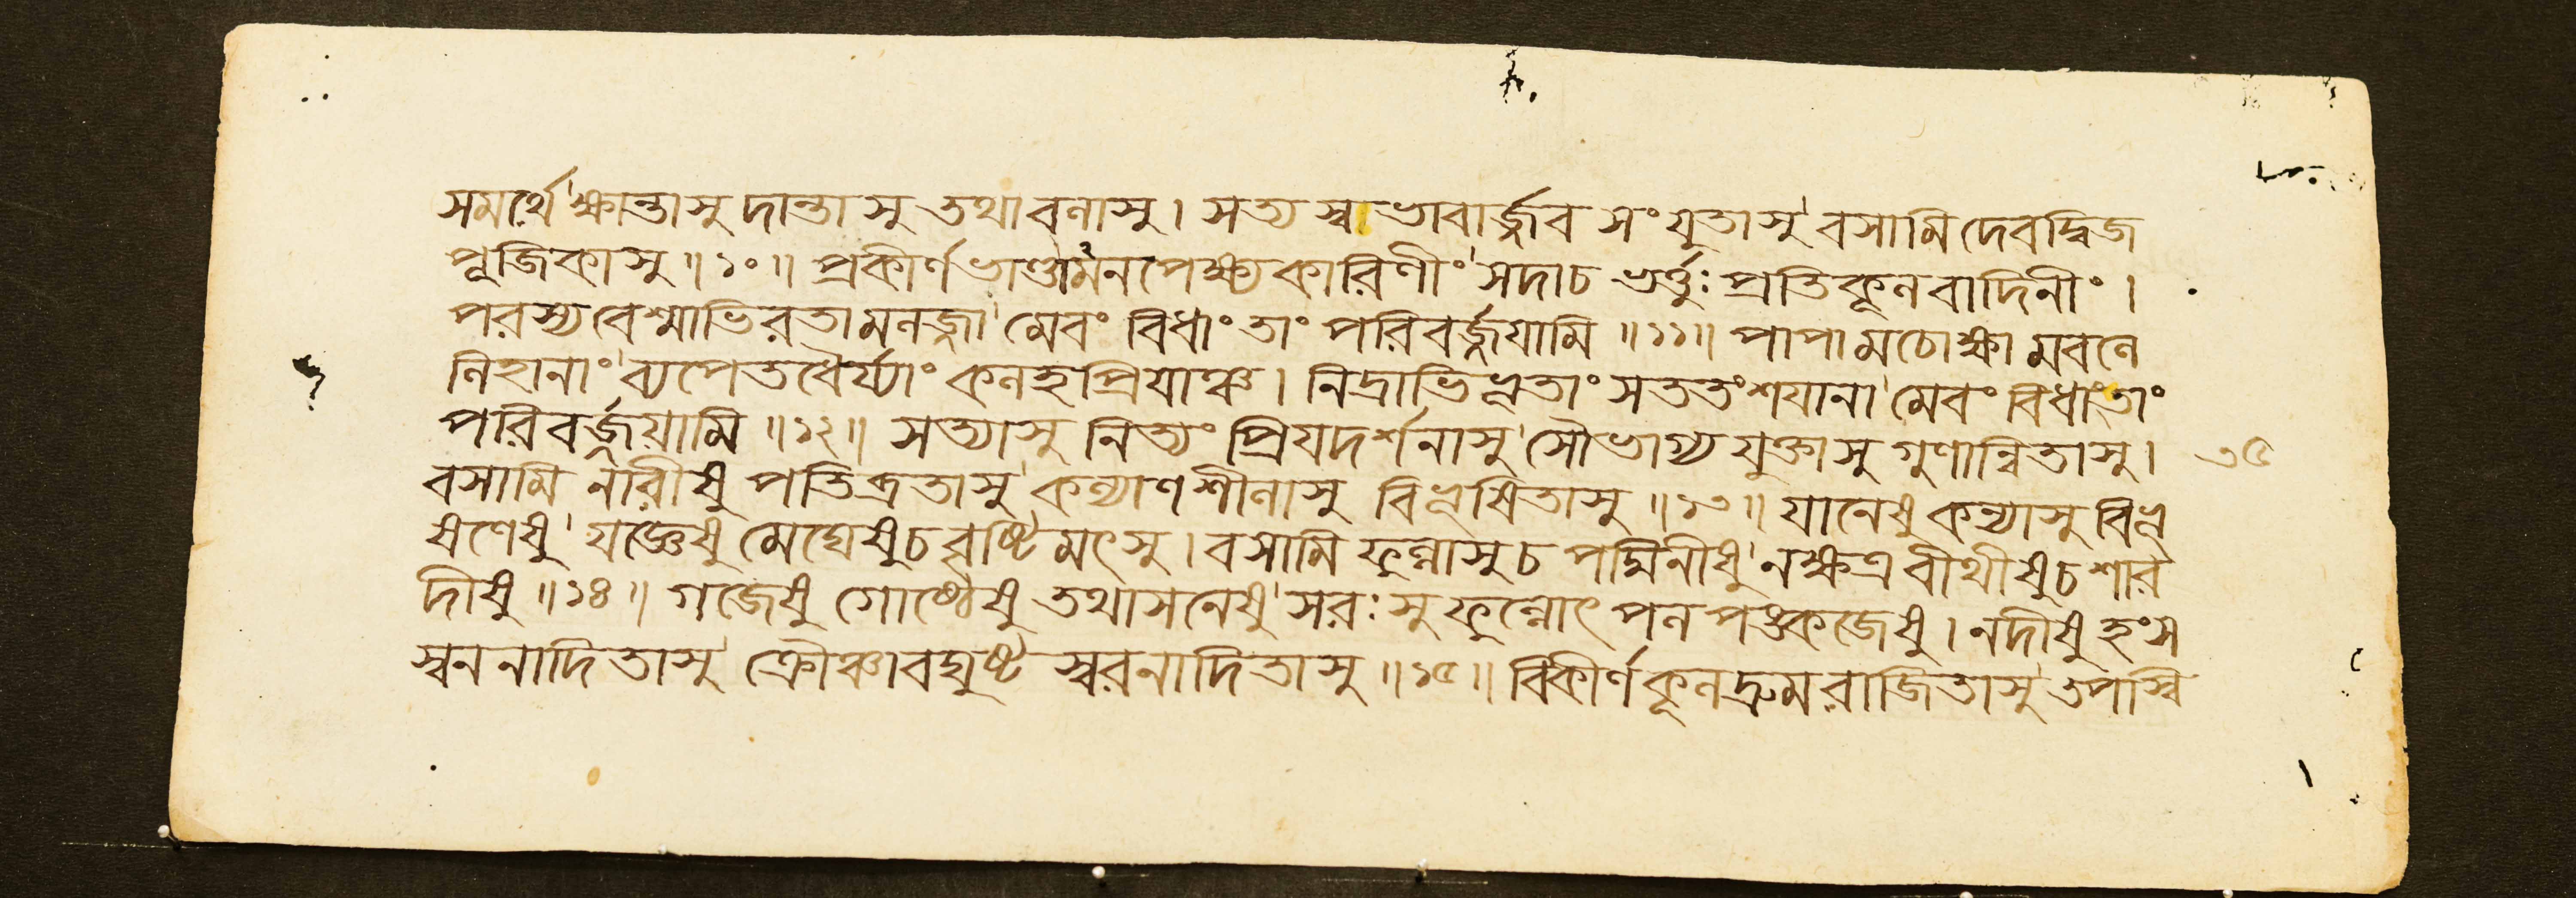 সমর্থে'ক্ষান্তাসু দান্তাসু তথাবলাসু। সত্য স্বভাবার্জ্জব সংযুতাসু'বসামি দেবদ্বিজ
পূজিকাসু॥১০॥ প্রকীর্ণভাণ্ডামনপেক্ষ্যকারিণীং'সদাচ ভর্ত্তুঃ প্রতিকূলবাদিনীং।
পরস্যবেশ্মাভিরতামলজ্জা'মেবং বিধাং তাং পরিবর্জ্জয়ামি॥১১॥ পাপামচোক্ষামবলে
লিহানাং'ব্যপেতধৈর্য্যাং কলহপ্রিয়াঞ্চ। নিদ্রাভিভূতাং সততংশয়ানা'মেবং বিধাংতাং
পরিবর্জ্জয়ামি॥১২॥ সত্যাসু নিত্যং প্রিয়দর্শনাসু'সৌভাগ্য যুক্তাসু গুণান্বিতাসু। ৩৫
বসামি নারীষু পতিব্রতাসু'কল্যাণশীলাসু বিভূষিতাসু॥১৩॥ যানেষু কন্যাসু বিভূ
ষণেষু'যজ্ঞেষু মেঘেষুচ বৃষ্টিমৎসু। বসামি ফুল্লাসুচ পদ্মিনীষু'নক্ষত্র বীথীষুচ শার
দীষু॥১৪॥ গজেষু গোষ্ঠেষু তথাসনেষু'সরঃসু ফুল্লোৎপল পঙ্কজেষু। নদীষু হংস
স্বননাদিতাসু'ক্রৌঞ্চাবঘুষ্ট স্বরনাদিতাসু॥১৫॥ বিকীর্ণকূলদ্রুমরাজিতাসু'তপস্বি